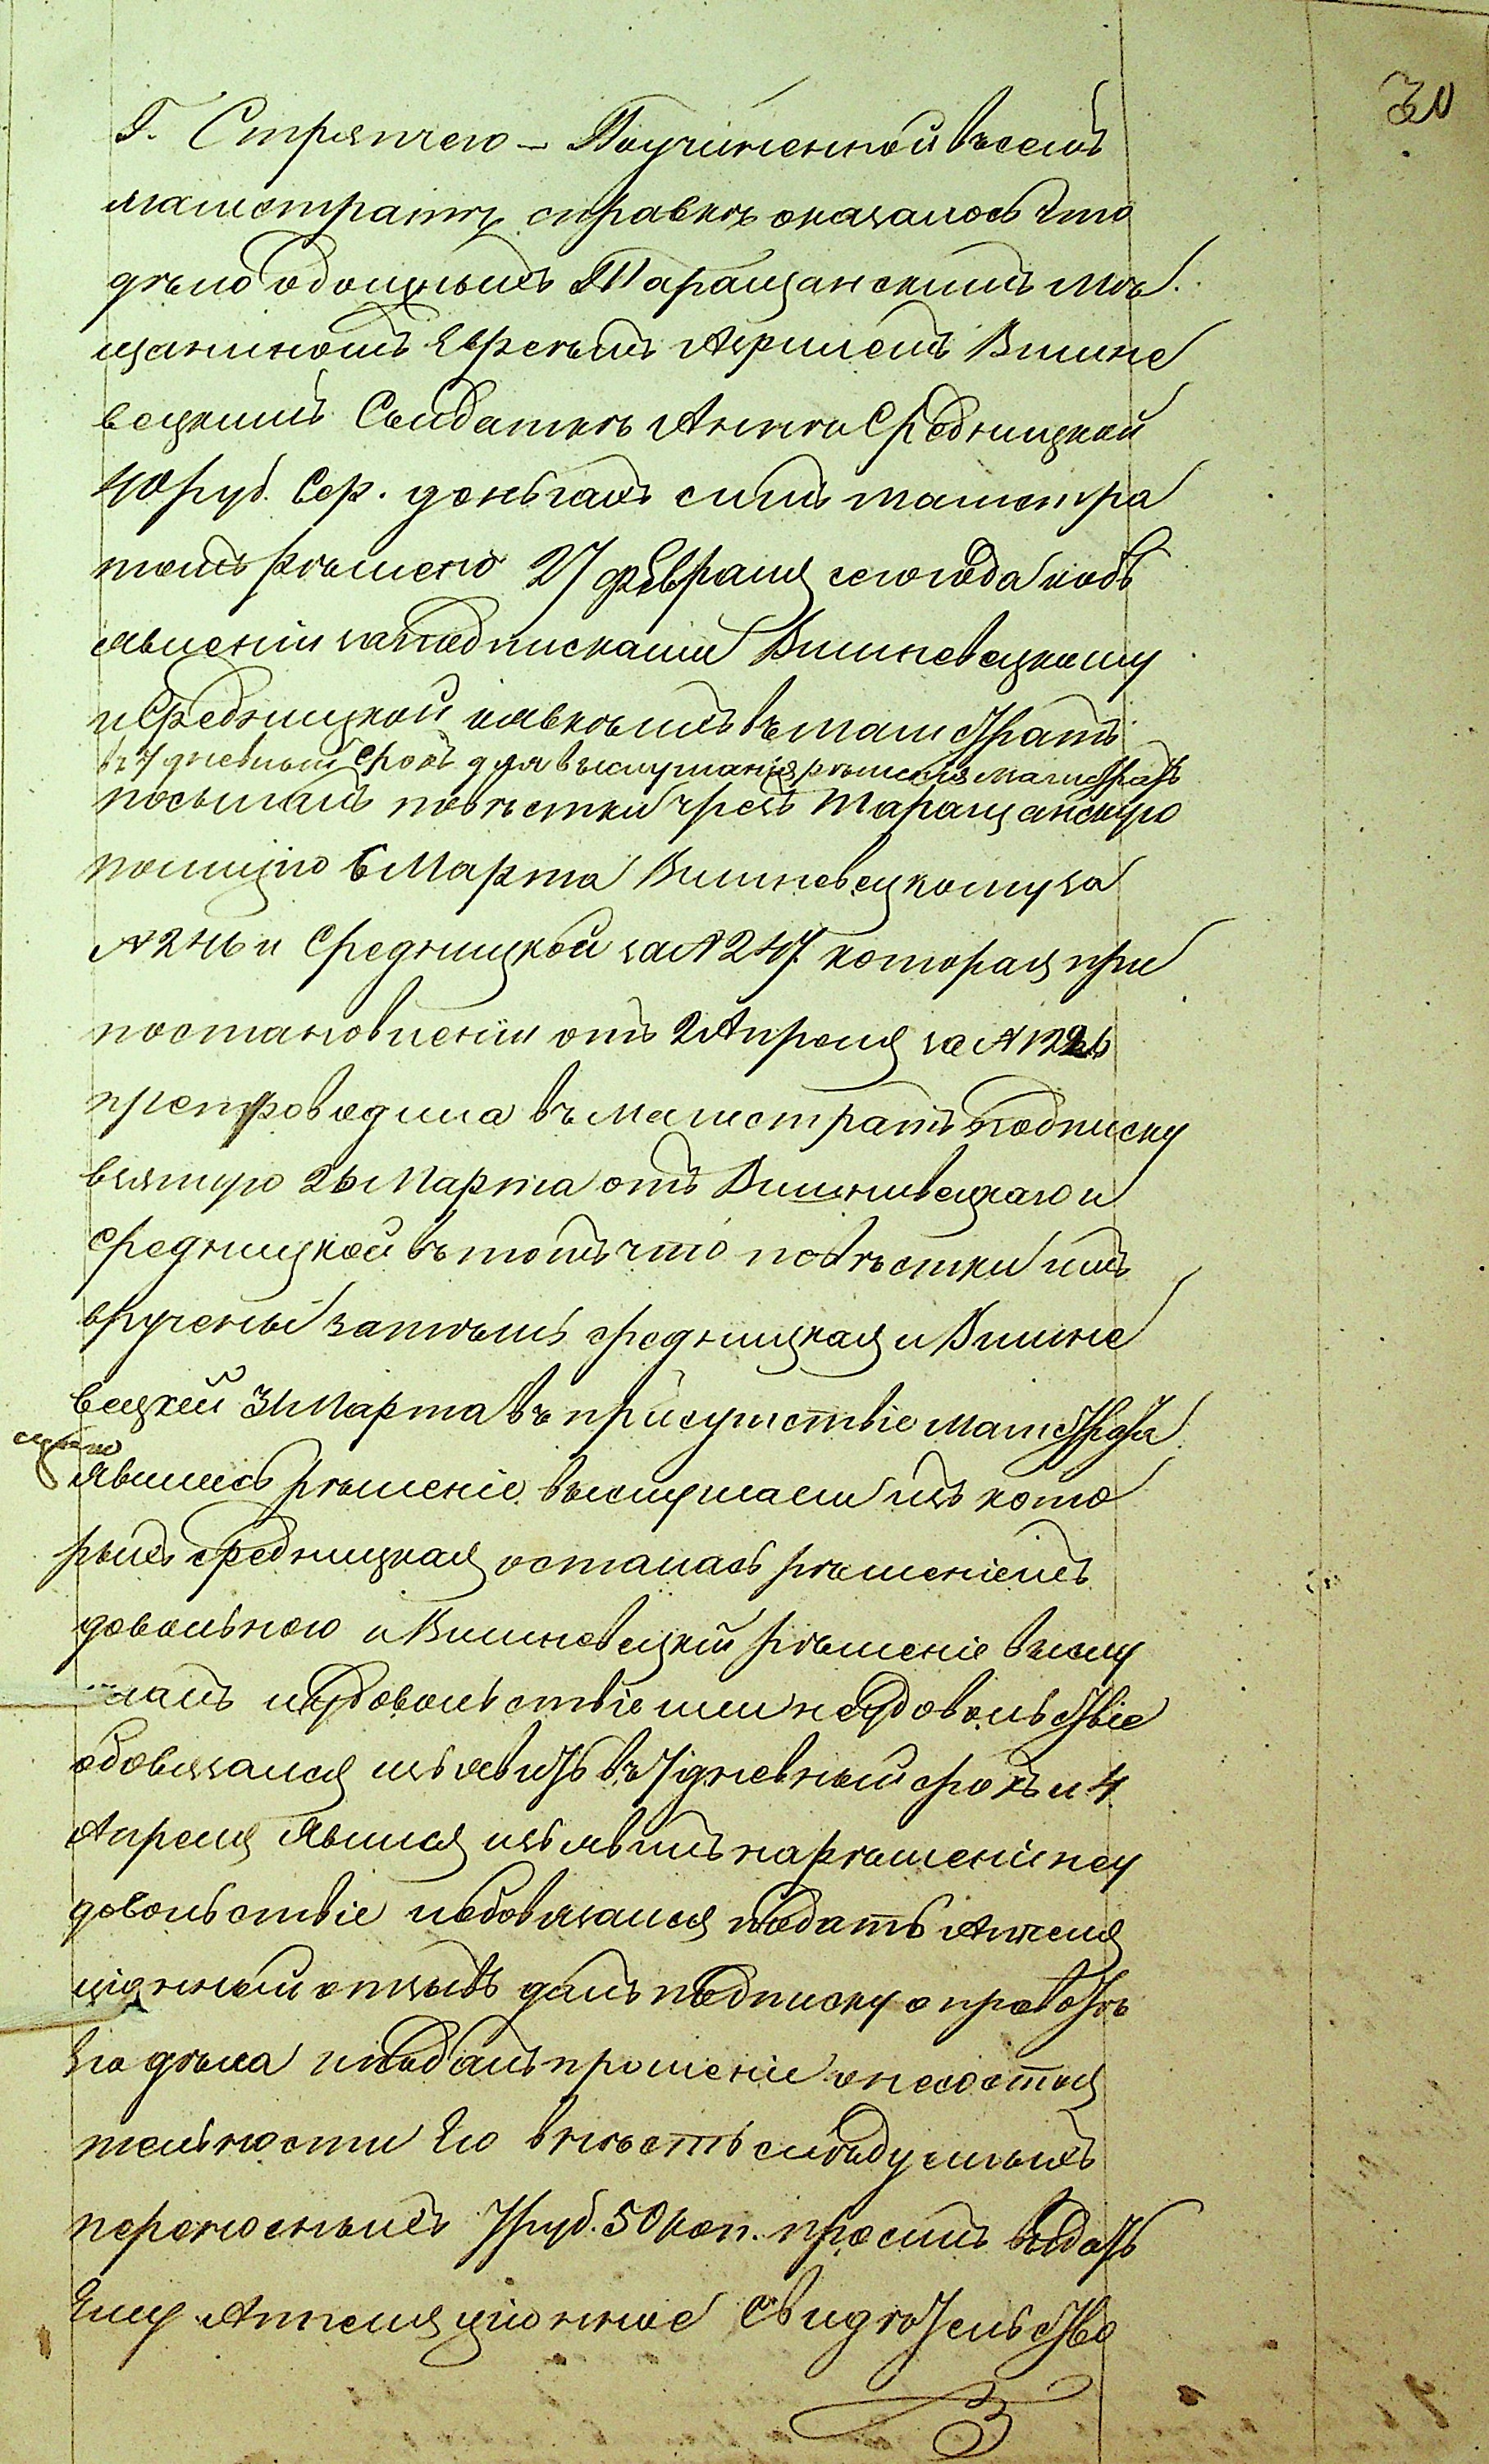 30
Г. Стряпчего – Поучиненной въ семъ
магистратѣ справкѣ оказалось что
дѣло о должныхъ Таращанскимъ мѣ
щаниномъ Евреемъ Лершемъ Вишне
вецкимъ Солдаткѣ Аннѣ Средницкой
40 руб. Сер. деньгахъ симъ магистра
томъ рѣшено 27 февраля сего года и объ
явленіи заподписками Вишневецкому
и Средницкой и явкѣ ихъ въ магистратъ
въ 7 дневный срокъ для выслушанія рѣшенія магистратъ
посылалъ повѣстки чрезъ Таращанскую
полицію 6 Марта Вишневецкому за
№ 246 и Средницкой за № 247. которая при
постановленіи отъ 2 Апреля за №
препроводила въ магистратъ подписку
взятую 26 Марта отъ Вишнивецкаго и
Средницкой въ томъ что повѣстки имъ
вручены затѣмъ Средницкая и Вишне
вецкій 31 Марта въ присутствіе магистрата
явились рѣшеніе выслушали изъ кото
рыхъ Средницкая осталась рѣшеніемъ
довольною а Вишневецкій рѣшеніе выслу
шалъ и удовольствіе или неудовольствіе
обовязался изъявить въ 7 дневный срокъ и 4
Апреля явился изъявилъ на рѣшеніи неу
довольствіе и обовязался подать Апеля
ціонный отзывъ далъ подписку о правотѣ
Его дѣла и подалъ прошеніе о несостоя
тельности Его внѣсть слѣдуемыхъ
переносныхъ 7 руб. 50 коп. просилъ выдать
Ему Аппеляціонное Свидѣтельство